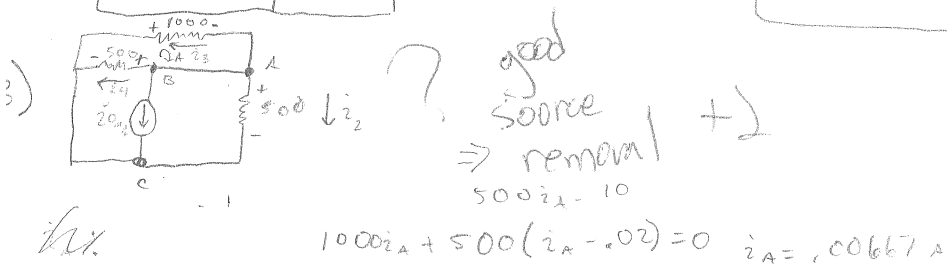 + 1000 -
- 500 + iA i3
A
B
i4
+
500 ↓ i2
-
C
?
good
source
⇒ removal +2
500iA - 10
1000iA + 500(iA - .02) = 0 iA = .00667 A